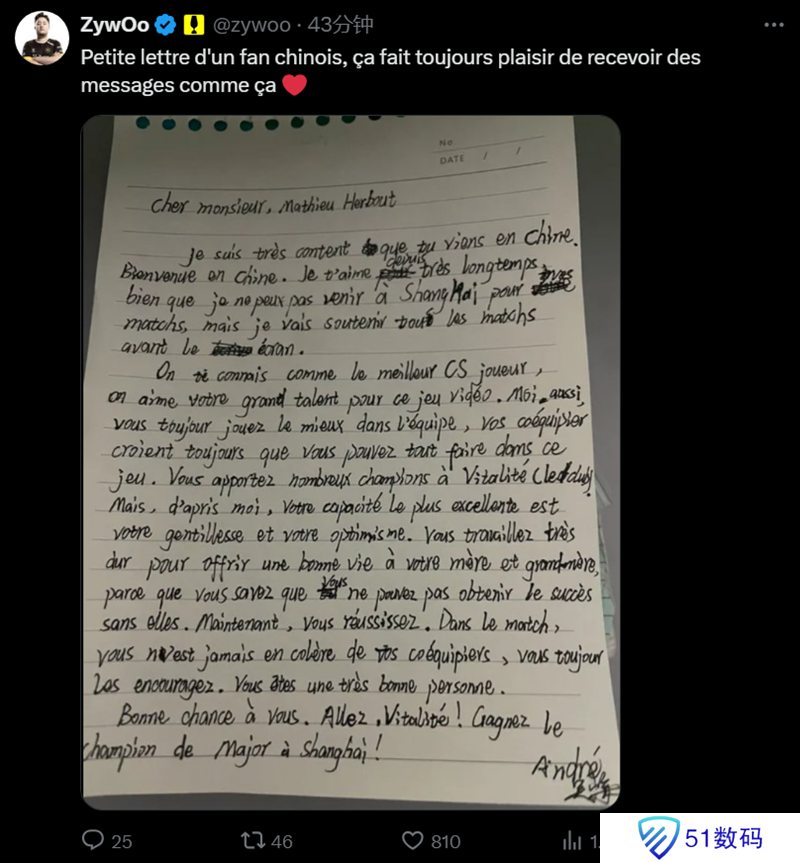 ZywOo @zywoo · 43分钟
Petite lettre d'un fan chinois, ça fait toujours plaisir de recevoir des
messages comme ça
No
DATE / /
Cher monsieur, Mathieu Herbaut
Je suis très content que tu viens en Chine.
Bienvenue en Chine. Je t'aime depuis très longtemps,
bien que je ne peux pas venir à ShangHai pour
matchs, mais je vais soutenir tous les matchs
avant le écran.
On te connais comme le meilleur CS joueur,
on aime votre grand talent pour ce jeu vidéo. Moi aussi,
vous toujour jouez le mieux dans l'équipe, vos coéquipier
croient toujours que vous pouvez tout faire dans ce
jeu. Vous apportez nombreux champions à Vitalité
Mais, d'apris moi, votre capacité le plus excellente est
votre gentillesse et votre optimisme. Vous travaillez très
dur pour offrir une bonne vie à votre mère et grand-mère,
parce que vous savez que vous ne pouvez pas obtenir le succès
sans elles. Maintenant, vous réussissez. Dans le match,
vous n'est jamais en colère de vos coéquipiers, vous toujour
les encouragez. Vous êtes une très bonne personne.
Bonne chance à vous. Allez, Vitalité! Gagnez le
champion de Major à Shanghai!
André
25 46 810
51数码